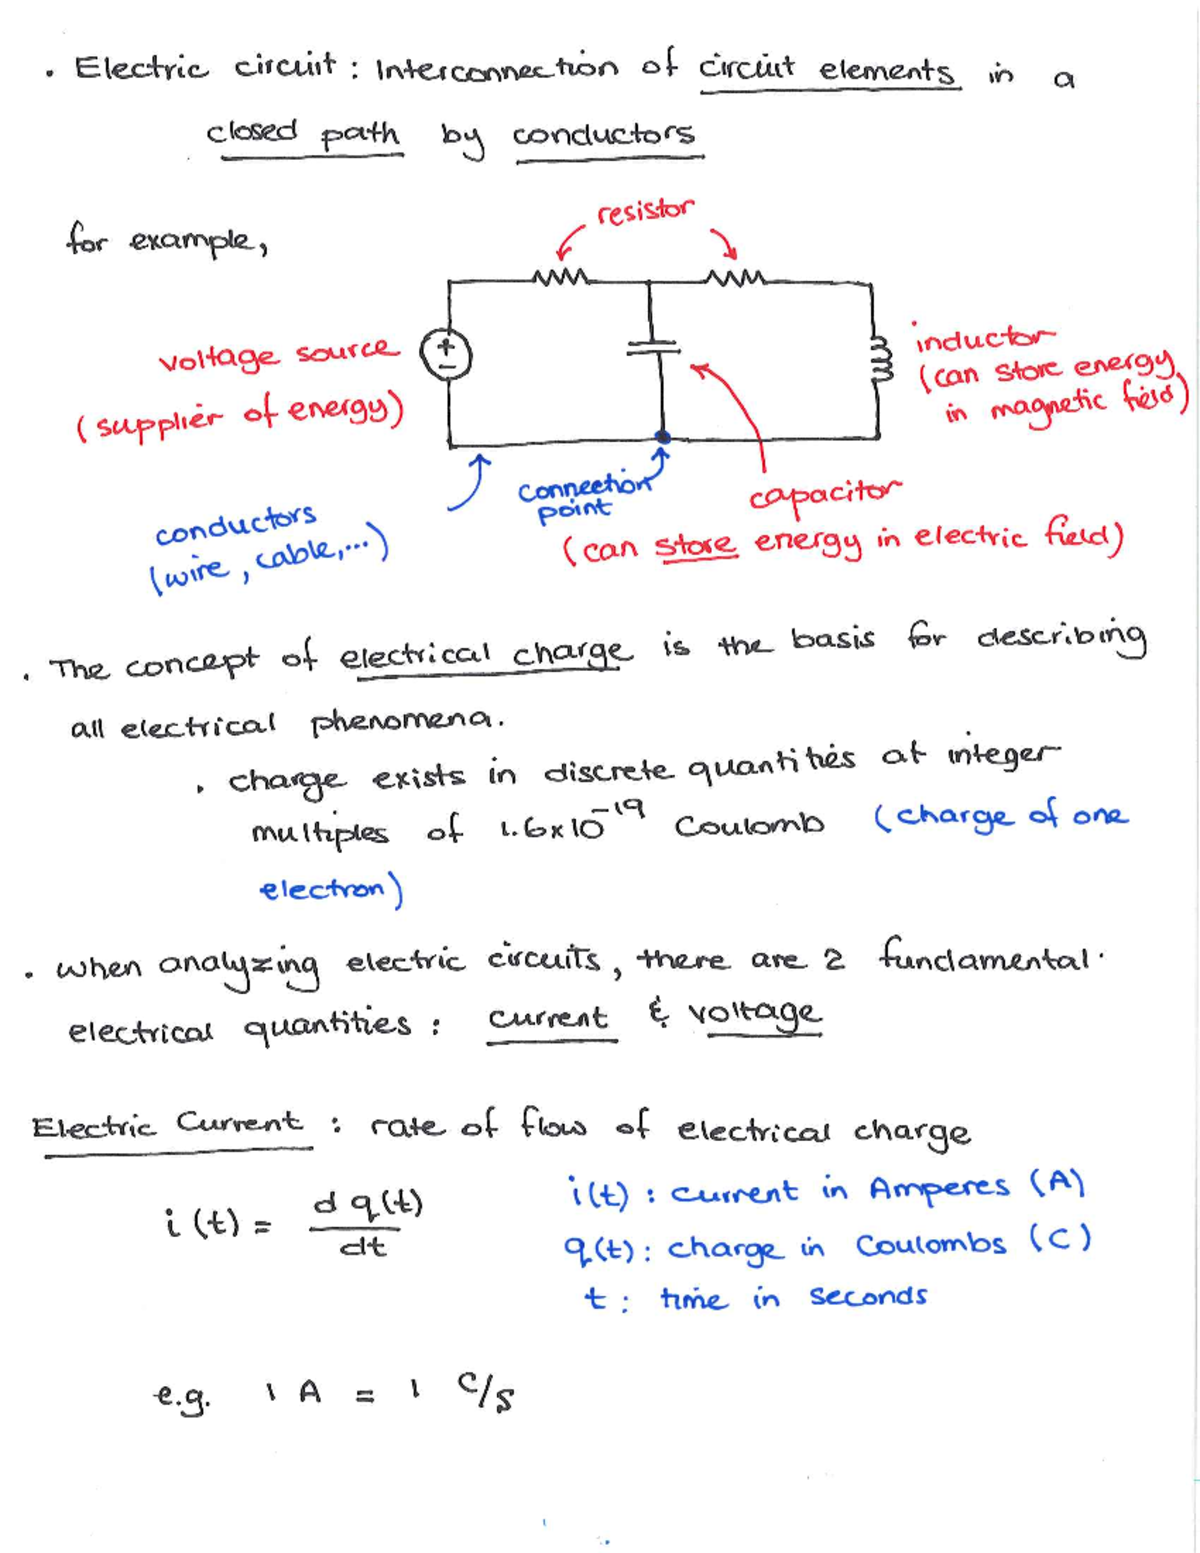 • Electric circuit : Interconnection of circuit elements in a
closed path by conductors
for example,
resistor
voltage source
(supplier of energy)
+
−
inductor
(can store energy
in magnetic field)
conductors
(wire, cable,...)
connection
point
capacitor
(can store energy in electric field)
• The concept of electrical charge is the basis for describing
all electrical phenomena.
• charge exists in discrete quantities at integer
multiples of 1.6x10⁻¹⁹ Coulomb (charge of one
electron)
• when analyzing electric circuits, there are 2 fundamental
electrical quantities : current & voltage
Electric Current : rate of flow of electrical charge
i(t) = d q(t) / dt
i(t) : current in Amperes (A)
q(t) : charge in Coulombs (C)
t : time in seconds
e.g. 1 A = 1 C/s